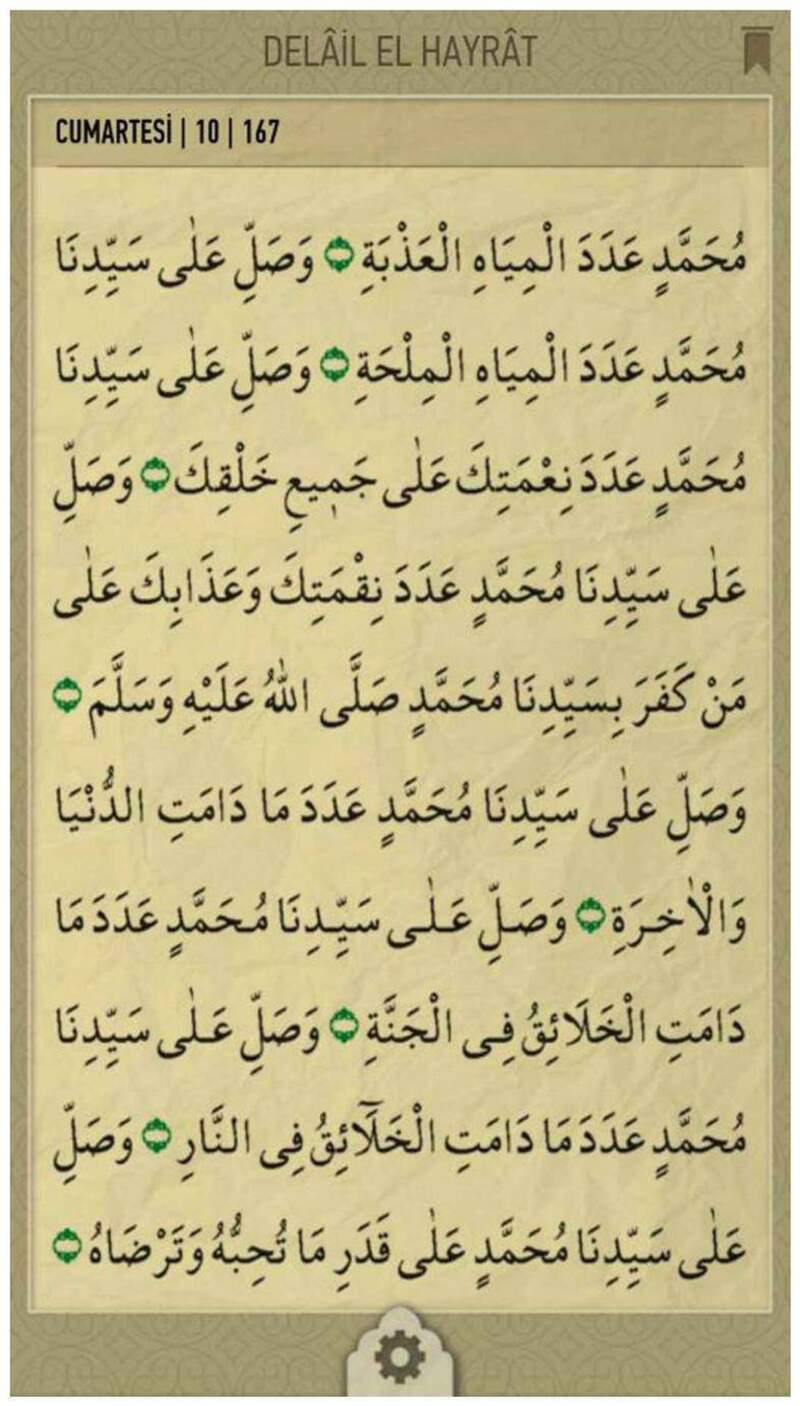 DELÂİL EL HAYRÂT
CUMARTESİ | 10 | 167
مُحَمَّدٍ عَدَدَ الْمِيَاهِ الْعَذْبَةِ وَصَلِّ عَلٰى سَيِّدِنَا
مُحَمَّدٍ عَدَدَ الْمِيَاهِ الْمِلْحَةِ وَصَلِّ عَلٰى سَيِّدِنَا
مُحَمَّدٍ عَدَدَ نِعْمَتِكَ عَلٰى جَمِيعِ خَلْقِكَ وَصَلِّ
عَلٰى سَيِّدِنَا مُحَمَّدٍ عَدَدَ نِقْمَتِكَ وَعَذَابِكَ عَلٰى
مَنْ كَفَرَ بِسَيِّدِنَا مُحَمَّدٍ صَلَّى اللهُ عَلَيْهِ وَسَلَّمَ
وَصَلِّ عَلٰى سَيِّدِنَا مُحَمَّدٍ عَدَدَ مَا دَامَتِ الدُّنْيَا
وَالْاٰخِرَةِ وَصَلِّ عَلٰى سَيِّدِنَا مُحَمَّدٍ عَدَدَ مَا
دَامَتِ الْخَلَائِقُ فِى الْجَنَّةِ وَصَلِّ عَلٰى سَيِّدِنَا
مُحَمَّدٍ عَدَدَ مَا دَامَتِ الْخَلَٓائِقُ فِى النَّارِ وَصَلِّ
عَلٰى سَيِّدِنَا مُحَمَّدٍ عَلٰى قَدَرِ مَا تُحِبُّهُ وَتَرْضَاهُ